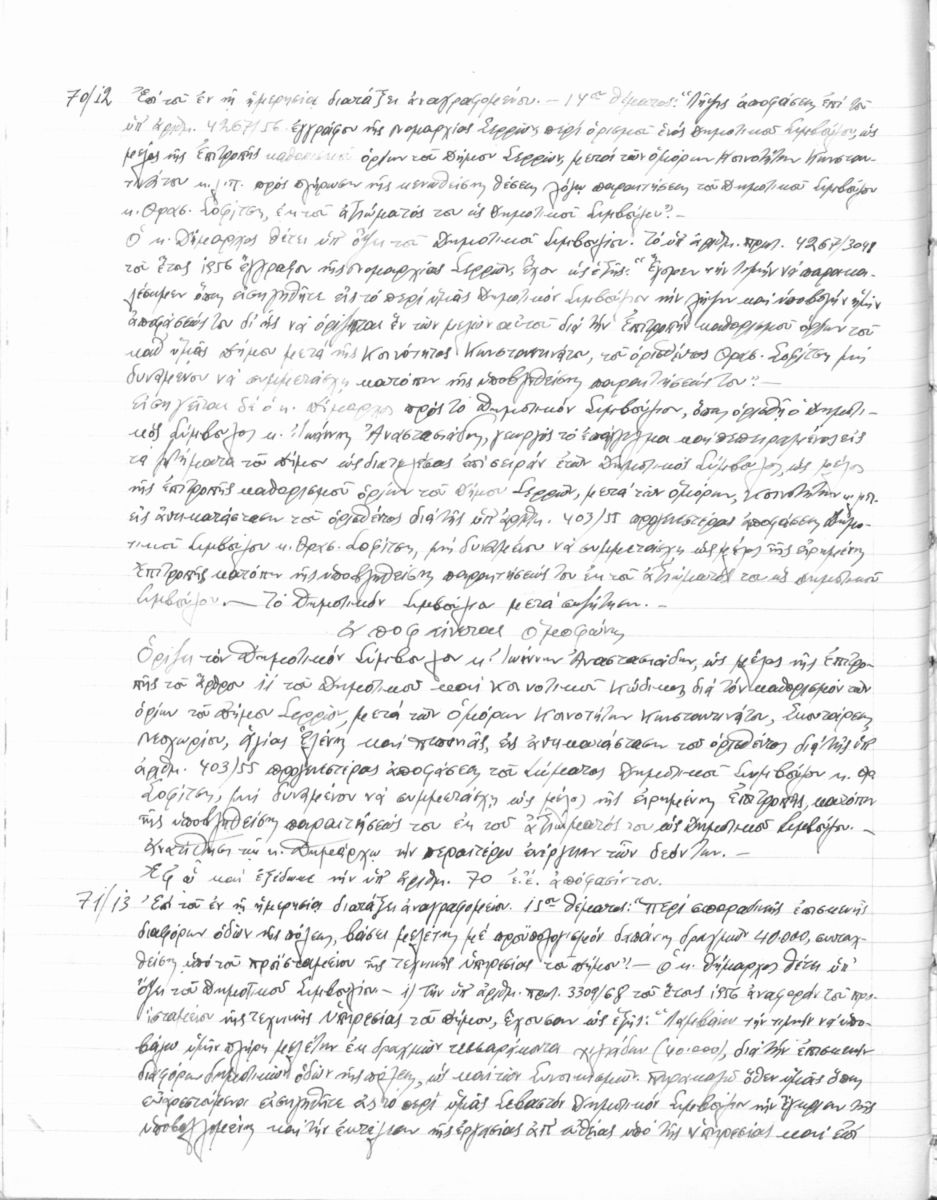 70/12 Ἐπὶ τοῦ ἐν τῇ ἡμερησίᾳ διατάξει ἀναγραφομένου. – 14ου θέματος: "Λῆψις ἀποφάσεως ἐπὶ τοῦ
ὑπ' ἀριθμ. 4267/56 ἐγγράφου τῆς Νομαρχίας Σερρῶν, περὶ ὁρισμοῦ ἑνὸς Δημοτικοῦ Συμβούλου, ὡς
μέλος τῆς Ἐπιτροπῆς καθορισμοῦ ὁρίων τοῦ Δήμου Σερρῶν, μετὰ τῶν ὁμόρων Κοινοτήτων Κωνσταν-
τινάτου κ.λ.π. πρὸς πλήρωσιν τῆς κενωθείσης θέσεως λόγῳ παραιτήσεως τοῦ Δημοτικοῦ Συμβούλου
κ. Θρασ. Σοφίτση, ἐκ τοῦ ἀξιώματός του ὡς Δημοτικοῦ Συμβούλου". –
Ὁ κ. Δήμαρχος θέτει ὑπ' ὄψει τοῦ Δημοτικοῦ Συμβουλίου. Τὸ ὑπ' ἀριθμ. πρωτ. 4267/3048
τοῦ ἔτους 1956 ἔγγραφον τῆς Νομαρχίας Σερρῶν, ἔχον ὡς ἑξῆς: "Ἔχομεν τὴν τιμὴν νὰ παρακα-
λέσωμεν ὅπως εἰσηγηθῆτε εἰς τὸ περὶ ὑμᾶς Δημοτικὸν Συμβούλιον τὴν λῆψιν καὶ ὑποβολὴν ἡμῖν
ἀποφάσεώς του δι' ἧς νὰ ὁρίζηται ἓν τῶν μελῶν αὐτοῦ διὰ τὴν Ἐπιτροπὴν καθορισμοῦ ὁρίων τοῦ
καθ' ὑμᾶς Δήμου μετὰ τῆς Κοινότητος Κωνσταντινάτου, τοῦ ὁρισθέντος Θρασ. Σοφίτση μὴ
δυναμένου νὰ συμμετάσχῃ κατόπιν τῆς ὑποβληθείσης παραιτήσεώς του". –
Εἰσηγεῖται δὲ ὁ κ. Δήμαρχος πρὸς τὸ Δημοτικὸν Συμβούλιον, ὅπως ὁρισθῇ ὁ Δημοτι-
κὸς Σύμβουλος κ. Ἰωάννης Ἀναστασιάδης, γεωργὸς τὸ ἐπάγγελμα καὶ πεπειραμένος εἰς
τὰ κτήματα τοῦ Δήμου ὡς διατελέσας ἐπὶ σειρὰν ἐτῶν Δημοτικὸς Σύμβουλος, ὡς μέλος
τῆς ἐπιτροπῆς καθορισμοῦ ὁρίων τοῦ Δήμου Σερρῶν, μετὰ τῶν ὁμόρων, Κοινοτήτων κ.λ.π.
εἰς ἀντικατάστασιν τοῦ ὁρισθέντος διὰ τῆς ὑπ' ἀριθμ. 403/55 προγενεστέρας ἀποφάσεως Δημο-
τικοῦ Συμβούλου κ. Θρασ. Σοφίτση, μὴ δυναμένου νὰ συμμετάσχῃ ὡς μέλος τῆς εἰρημένης
Ἐπιτροπῆς κατόπιν τῆς ὑποβληθείσης παραιτήσεώς του ἐκ τοῦ ἀξιώματός του ὡς Δημοτικοῦ
Συμβούλου. – Τὸ Δημοτικὸν Συμβούλιον μετὰ συζήτησιν. –
Ἀποφαίνεται Ὁμοφώνως
Ὁρίζει τὸν Δημοτικὸν Σύμβουλον κ. Ἰωάννην Ἀναστασιάδην, ὡς μέλος τῆς Ἐπιτρο-
πῆς τοῦ ἄρθρου 11 τοῦ Δημοτικοῦ καὶ Κοινοτικοῦ Κώδικος διὰ τὸν καθορισμὸν τῶν
ὁρίων τοῦ Δήμου Σερρῶν, μετὰ τῶν Ὁμόρων Κοινοτήτων Κωνσταντινάτου, Σκουτάρεως,
Νεοχωρίου, Ἁγίας Ἑλένης καὶ Πεπονιᾶς, εἰς ἀντικατάστασιν τοῦ ὁρισθέντος διὰ τῆς ὑπ'
ἀριθμ. 403/55 προγενεστέρας ἀποφάσεως τοῦ Σώματος Δημοτικοῦ Συμβούλου κ. Θρ.
Σοφίτση, μὴ δυναμένου νὰ συμμετάσχῃ ὡς μέλος τῆς εἰρημένης Ἐπιτροπῆς, κατόπιν
τῆς ὑποβληθείσης παραιτήσεώς του ἐκ τοῦ ἀξιώματός του ὡς Δημοτικοῦ Συμβούλου. –
Ἀνατίθησι τῷ κ. Δημάρχῳ τὴν περαιτέρω ἐνέργειαν τῶν δεόντων. –
Ἐφ' ᾧ καὶ ἐξεδόθη τὴν ὑπ' ἀριθμ. 70 ἐ.ἔ. ἀπόφασίν του.
71/13 Ἐπὶ τοῦ ἐν τῇ ἡμερησίᾳ διατάξει ἀναγραφομένου. 15ου θέματος: "Περὶ σποραδικῆς ἐπισκευῆς
διαφόρων ὁδῶν τῆς πόλεως, βάσει μελέτης μὲ προϋπολογισμὸν δαπάνης δραχμῶν 40.000, συνταχ-
θείσης ὑπὸ τοῦ προϊσταμένου τῆς τεχνικῆς ὑπηρεσίας τοῦ Δήμου". – Ὁ κ. Δήμαρχος θέτει ὑπ'
ὄψει τοῦ Δημοτικοῦ Συμβουλίου – 1) Τὴν ὑπ' ἀριθμ. πρωτ. 3309/68 τοῦ ἔτους 1956 ἀναφορὰν τοῦ προ-
ϊσταμένου τῆς τεχνικῆς Ὑπηρεσίας τοῦ Δήμου, ἔχουσαν ὡς ἑξῆς: "Λαμβάνω τὴν τιμὴν νὰ ὑπο-
βάλω ὑμῖν πλήρη μελέτην ἐκ δραχμῶν τεσσαράκοντα χιλιάδων (40.000), διὰ τὴν ἐπισκευὴν
διαφόρων δημοτικῶν ὁδῶν τῆς πόλεως, ὡς καὶ τῶν Συνοικισμῶν. Παρακαλῶ ὅθεν ὑμᾶς ὅπως
εὐαρεστούμενοι εἰσηγηθῆτε εἰς τὸ περὶ ὑμᾶς Σεβαστὸν Δημοτικὸν Συμβούλιον τὴν ἔγκρισιν τῆς
ὑποβαλλομένης καὶ τὴν ἐκτέλεσιν τῆς ἐργασίας ἀπ' εὐθείας ὑπὸ τῆς ὑπηρεσίας καὶ ἐπὶ